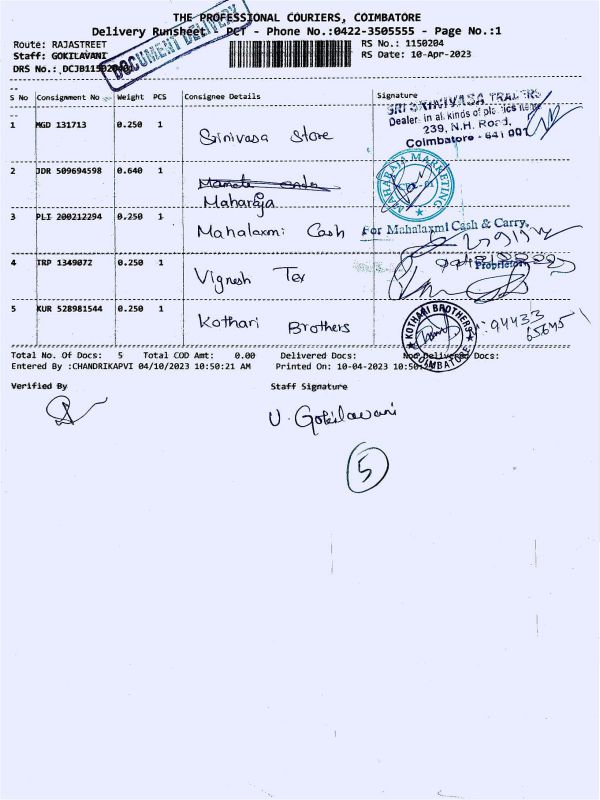 THE PROFESSIONAL COURIERS, COIMBATORE
Delivery Runsheet PCT - Phone No.:0422-3505555 - Page No.:1
DOCUMENT DELIVERY
Route: RAJASTREET
RS No.: 1150204
Staff: GOKILAVANI
RS Date: 10-Apr-2023
DRS No.:
S No Consignment No Weight PCS Consignee Details Signature
1 MGD 131713 0.250 1 Srinivasa Store
SRI SRINIVASA TRADERS
Dealer in all kinds of plastics
239, N.H. Road,
Coimbatore - 641 001
2 JDR 509694598 0.640 1
Maharaja
MAHARAJA MARKETING
3 PLI 200212294 0.250 1 Mahalaxmi Cash
For Mahalaxmi Cash & Carry.
Proprietor
4 TRP 1349072 0.250 1 Vignesh Tex
5 KUR 528981544 0.250 1 Kothari Brothers
KOTHARI BROTHERS
COIMBATORE
94433
65645
Total No. Of Docs: 5 Total COD Amt: 0.00 Delivered Docs: Non Delivered Docs:
Entered By :CHANDRIKAPVI 04/10/2023 10:50:21 AM Printed On: 10-04-2023
Verified By Staff Signature
U. Gokilavani
5